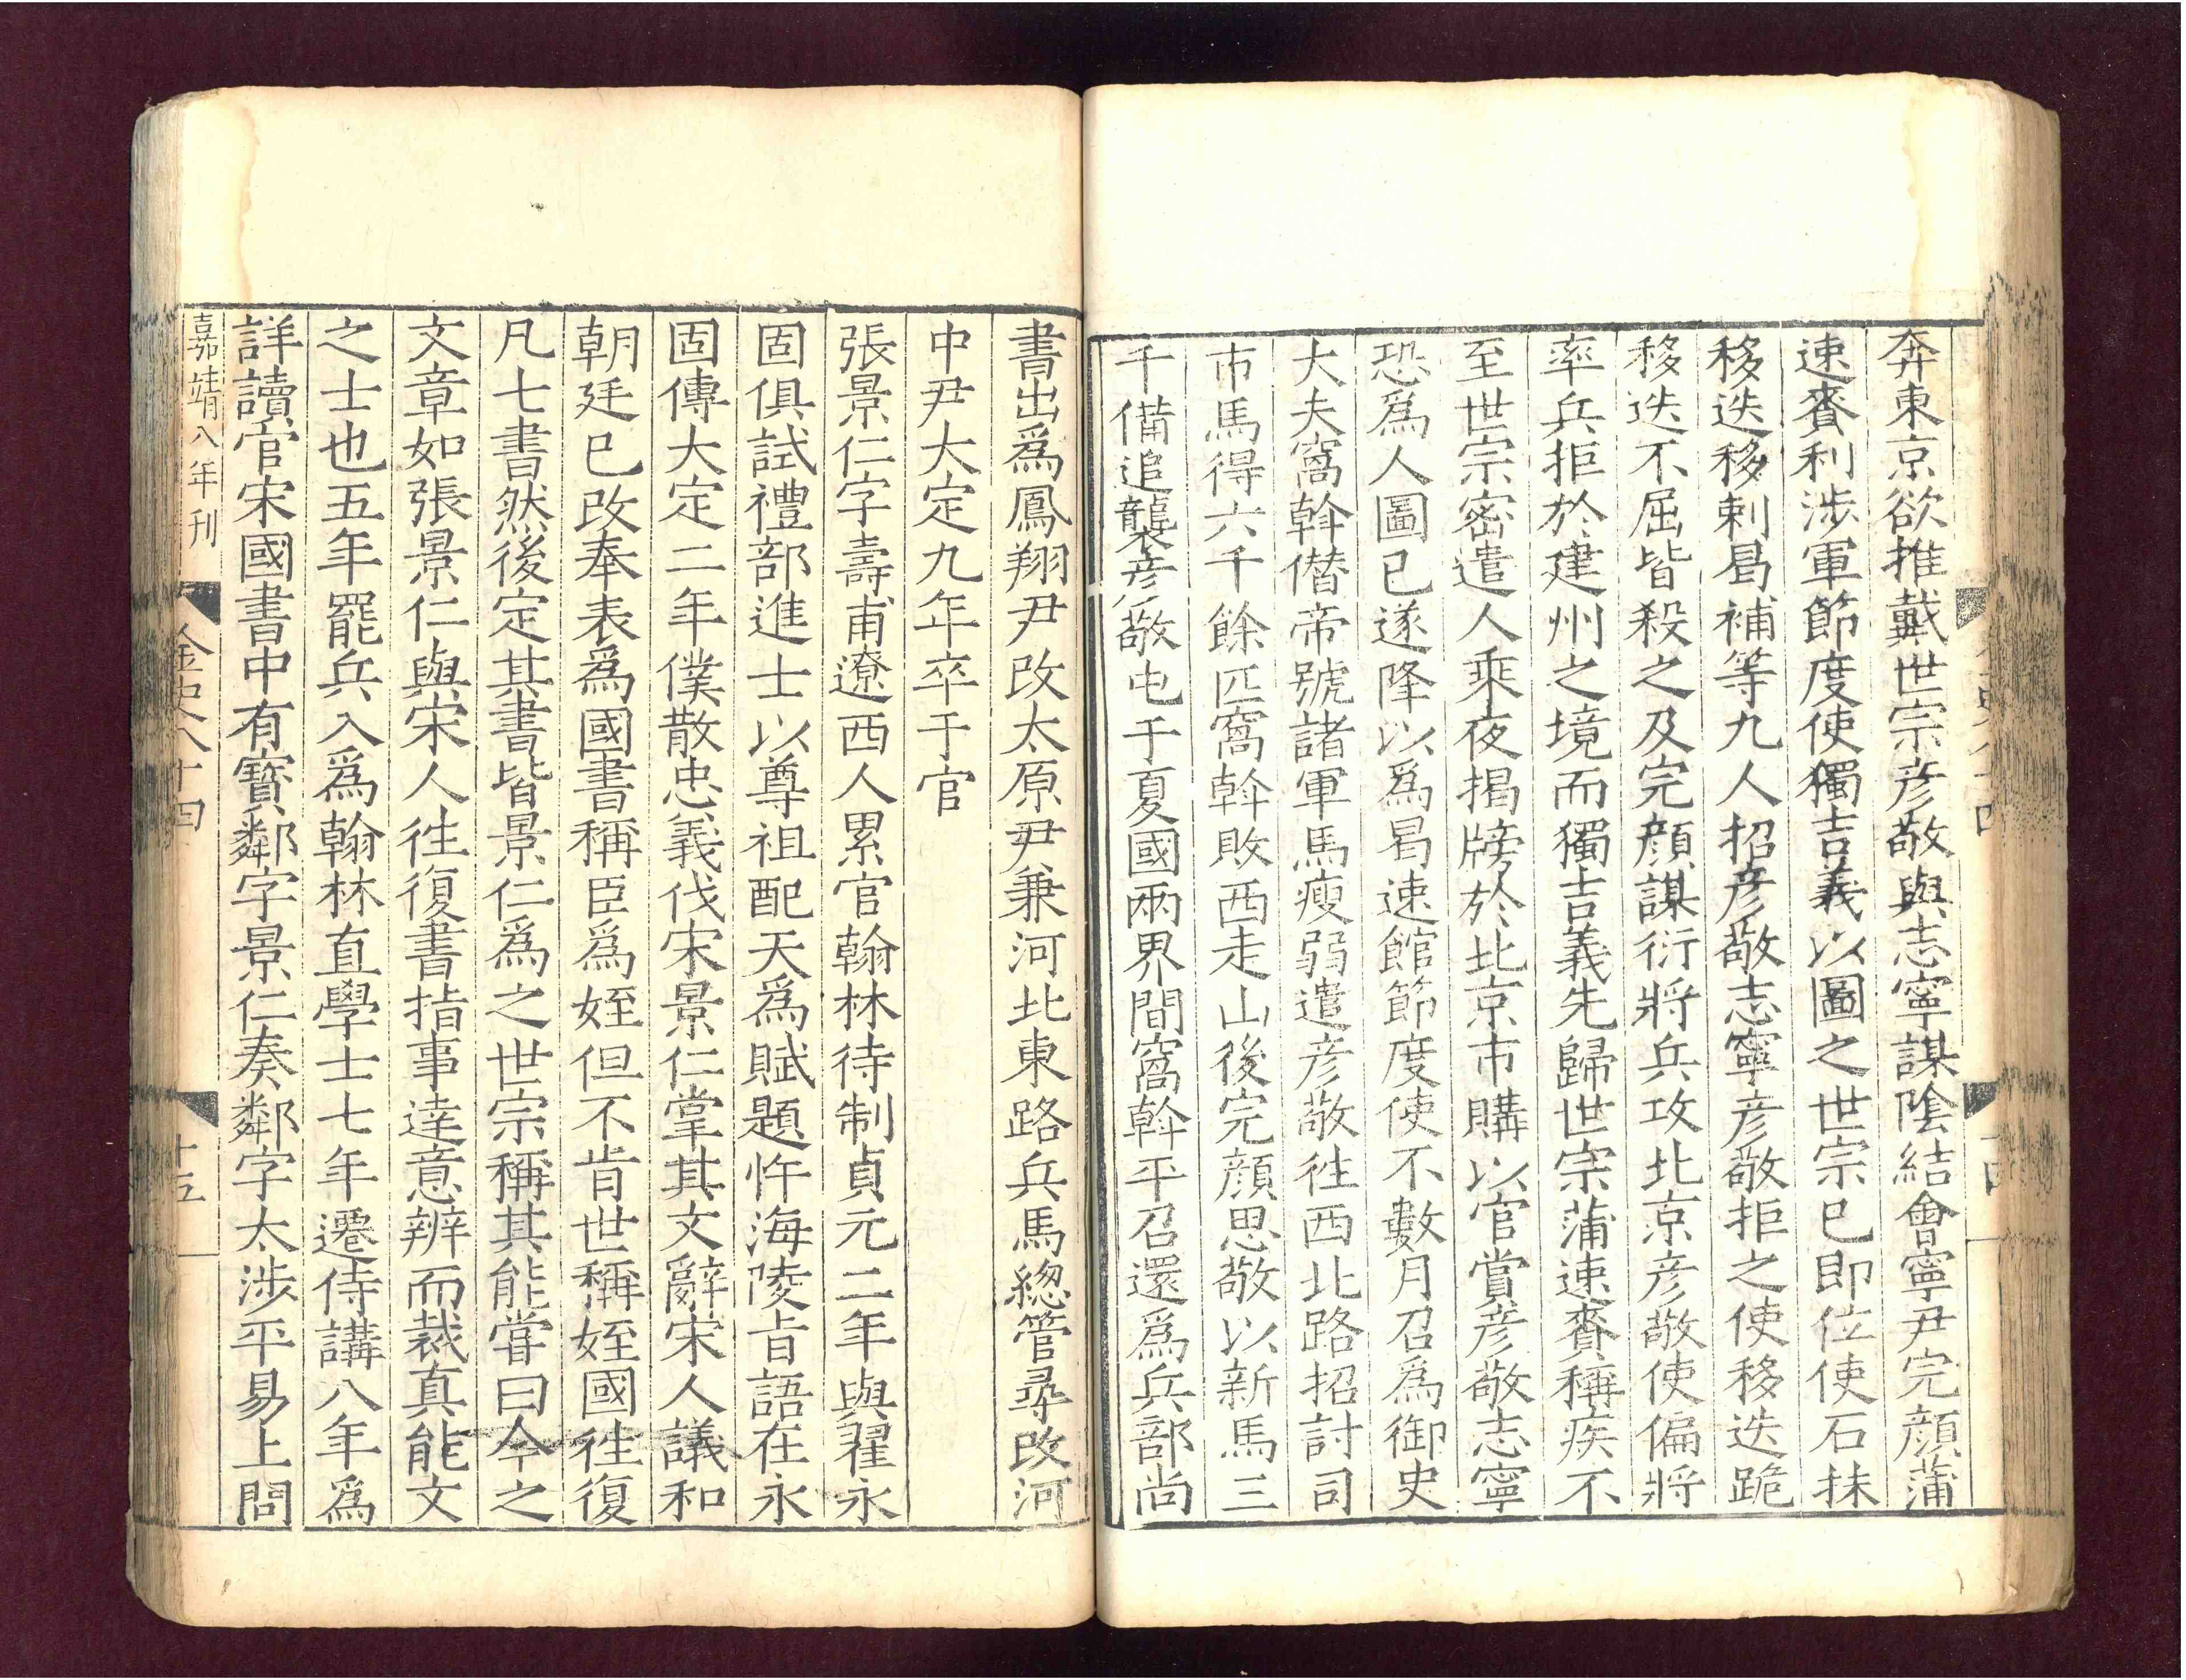 奔東京欲推戴世宗彦敬與志寧謀隂結會寧尹完顔蒲
速賚利涉軍節度使獨吉義以圖之世宗已即位使石抹
移迭移剌曷補等九人招彦敬志寧彦敬拒之使移迭跪
移迭不屈皆殺之及完顔謀衍將兵攻北京彦敬使偏將
率兵拒於建州之境而獨吉義先歸世宗蒲速賚稱疾不
至世宗密遣人乘夜揭牓於北京市購以官賞彦敬志寧
恐爲人圖已遂降以爲曷速館節度使不數月召爲御史
大夫窩斡僣帝號諸軍馬瘦弱遣彦敬徃西北路招討司
市馬得六千餘匹窩斡敗西走山後完顔思敬以新馬三
千備追襲彦敬屯于夏國兩界間窩斡平召還爲兵部尚
書出爲鳳翔尹改太原尹兼河北東路兵馬緫管尋改河
中尹大定九年卒于官
張景仁字壽甫遼西人累官翰林待制貞元二年與翟永
固俱試禮部進士以尊祖配天爲賦題忤海陵㫖語在永
固傳大定二年僕散忠義伐宋景仁掌其文辭宋人議和
朝廷已改奉表爲國書稱臣爲姪但不肯世稱姪國徃復
凡七書然後定其書皆景仁爲之世宗稱其能嘗曰今之
文章如張景仁與宋人徃復書指事達意辨而裁真能文
之士也五年罷兵入爲翰林直學士七年遷侍講八年爲
詳讀官宋國書中有寳鄰字景仁奏鄰字太涉平易上問
嘉靖八年刊
金史八十四
十五